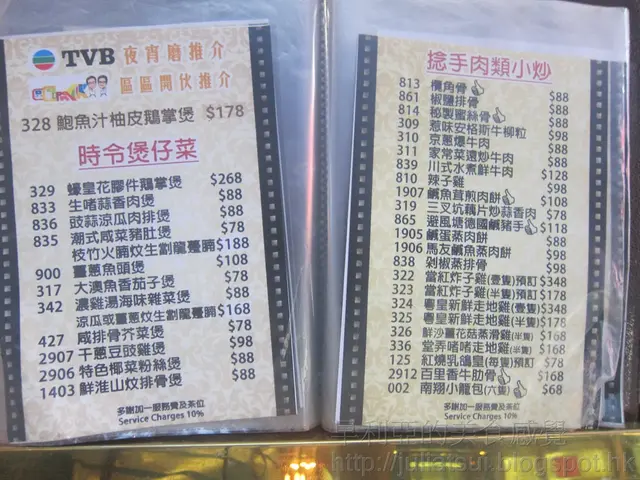 TVB 夜宵磨推介
區區開伙推介
328 鮑魚汁柚皮鵝掌煲 $178
時令煲仔菜
329 蠔皇花膠件鵝掌煲 $268
833 生啫蒜香肉煲 $88
836 豉蒜涼瓜肉排煲 $88
835 潮式咸菜豬肚煲 $78
枝竹火腩炆生劏龍躉腩 $188
900 薑蔥魚頭煲 $108
317 大澳魚香茄子煲 $78
342 濃雞湯海味雜菜煲 $88
涼瓜或薑蔥炆生劏龍躉腩 $168
427 咸排骨芥菜煲 $78
2907 干蔥豆豉雞煲 $98
2906 特色椰菜粉絲煲 $88
1403 鮮淮山炆排骨煲 $88
多謝加一服務費及茶位
Service Charges 10%
捻手肉類小炒
813 欖角骨 $88
861 椒鹽排骨 $88
814 秘製蜜絲骨 $88
309 惹味安格斯牛柳粒 $98
310 京蔥爆牛肉 $88
311 家常菜遠炒牛肉 $88
839 川式水煮鮮牛肉 $128
810 辣子雞 $98
1907 鹹魚茸煎肉餅 $98
319 三叉坑藕片炒蒜香肉 $78
865 避風塘德國鹹豬手 $118
1905 鹹蛋蒸肉餅 $88
1906 馬友鹹魚蒸肉餅 $98
838 剁椒蒸排骨 $98
322 當紅炸子雞(壹隻)預訂 $348
323 當紅炸子雞(半隻)預訂 $178
324 粵皇新鮮走地雞(壹隻) $348
325 粵皇新鮮走地雞(半隻) $178
326 鮮沙薑花菇蒸滑雞(半隻) $168
336 堂弄啫啫走地雞(半隻) $168
125 紅燒乳鴿皇(每隻)預訂 $78
2912 百里香牛肋骨 $168
002 南翔小龍包(六隻) $68
多謝加一服務費及茶位
Service Charges 10%
http://juliatsui.blogspot.hk